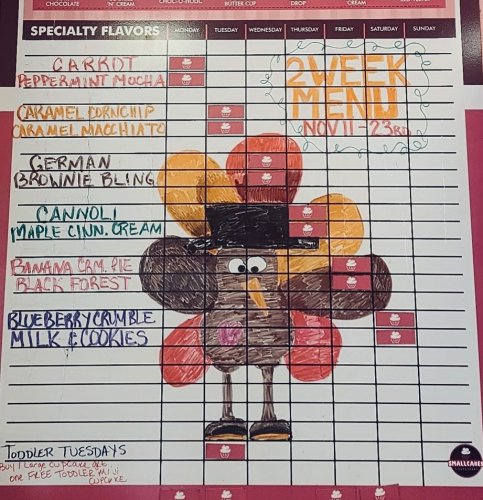 CHOCOLATE 'N' CREAM CHOC-O-HOLIC BUTTER CUP DROP CREAM
SPECIALTY FLAVORS MONDAY TUESDAY WEDNESDAY THURSDAY FRIDAY SATURDAY SUNDAY
CARROT
PEPPERMINT MOCHA
2 WEEK
MENU
NOV 11 - 23RD
CARAMEL CORNCHIP
CARAMEL MACCHIATO
GERMAN
BROWNIE BLING
CANNOLI
MAPLE CINN. CREAM
BANANA CRM. PIE
BLACK FOREST
BLUEBERRY CRUMBLE
MILK & COOKIES
TODDLER TUESDAYS
Buy 1 Large cupcake get
one FREE TODDLER MINI
CUPCAKE
SMALLCAKES